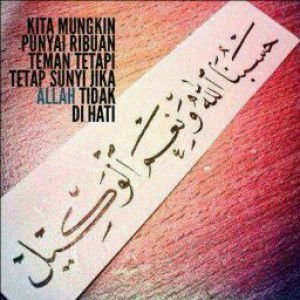 KITA MUNGKIN
PUNYAI RIBUAN
TEMAN TETAPI
TETAP SUNYI JIKA
ALLAH TIDAK
DI HATI
حسبنا الله ونعم الوكيل